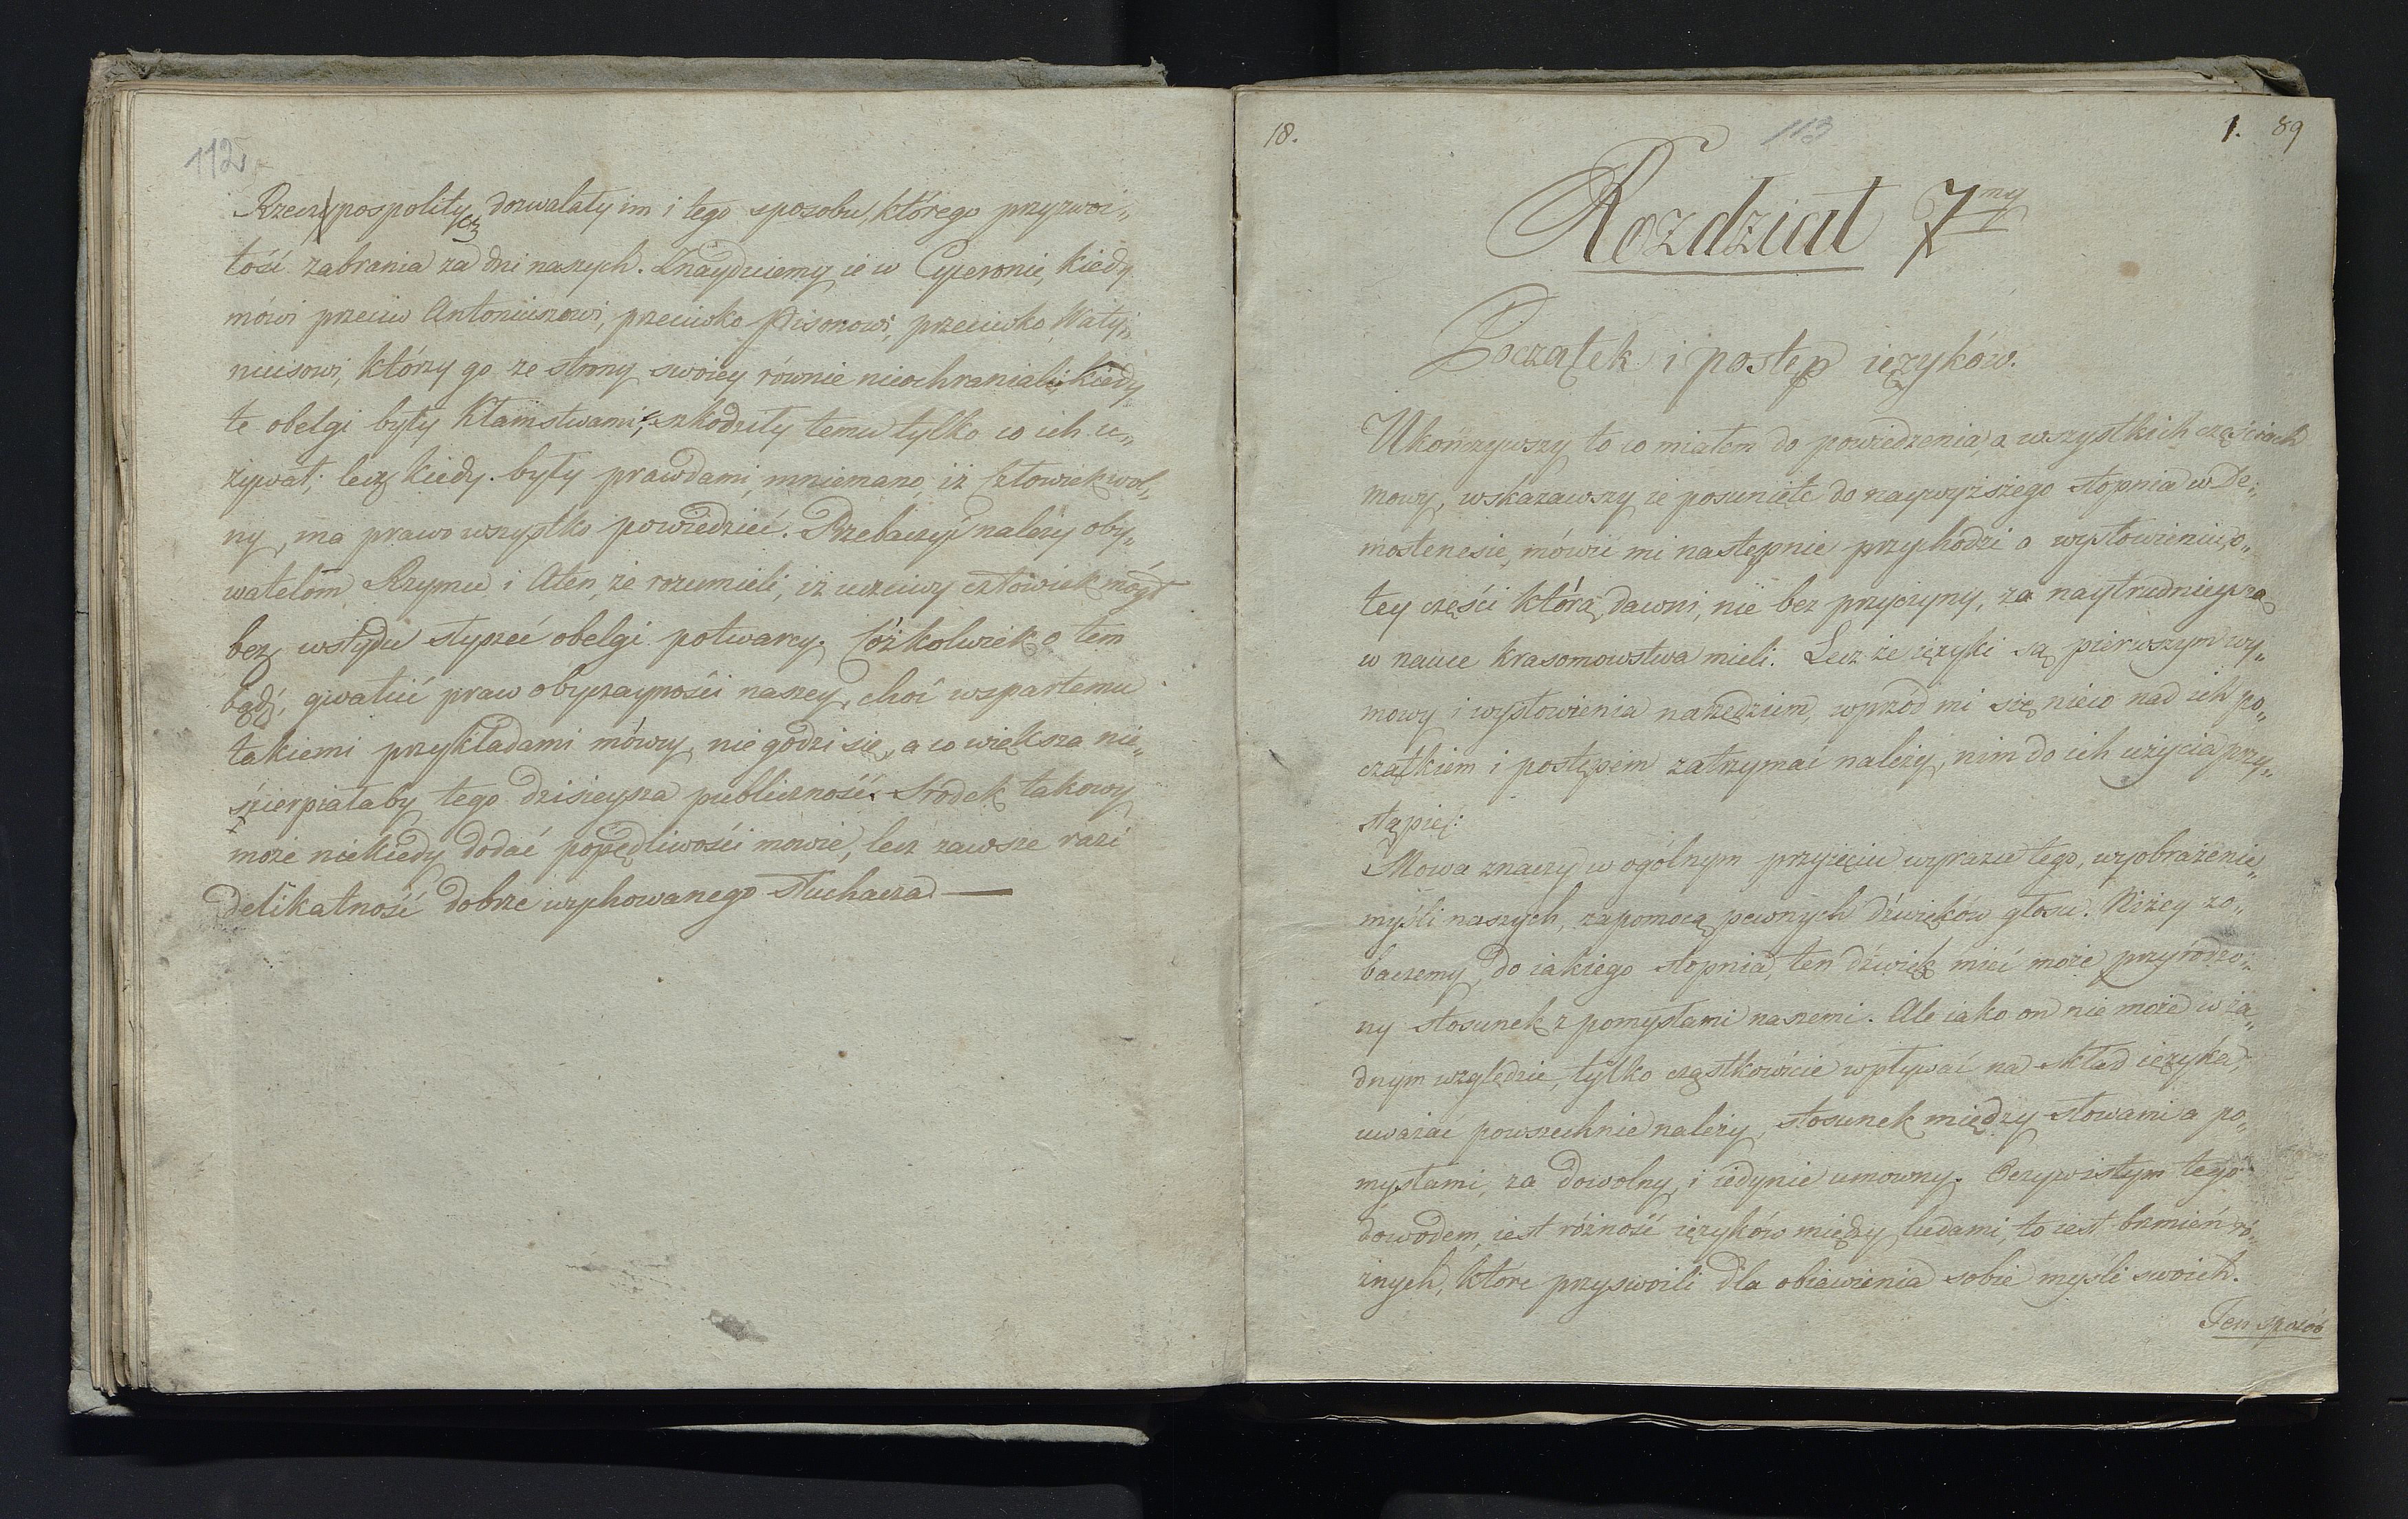 112
Rzeczypospolitych dozwalały im i tego sposobu, którego przyzwoi„
tość zabrania za dni naszych. Znaydziemy ie w Cyceronie, kiedy
mówi przeciw Antoniuszowi, przeciwko Pisonowi, przeciwko Waty„
niusowi, który go ze strony swoiey równie nieochraniali; kiedy
te obelgi były kłamstwami, szkodziły temu tylko co ich u„
żywał; lecz kiedy były prawdami, mniemano, iż człowiek wol„
ny, ma prawo wszystko powiedzieć. Przebaczyć należy oby„
watelom Rzymu i Aten, że rozumieli, iż uczciwy człowiek mógł
bez wstydu słyszeć obelgi potwarcy. Cóżkolwiek o tem
bądź, gwałcić praw obyczayności naszey, choć wspartemu
takiemi przykładami mówcy, nie godzi się, a co większa nie„
ścierpiałaby tego dzisieysza publiczność. Srodek takowy
może niekiedy dodać popędliwości mowie, lecz zawsze razi
delikatność dobrze wychowanego słuchacza —
18.
113
1. 89
Rozdział 7my
Początek i postęp ięzyków.
Ukończywszy to co miałem do powiedzenia, o wszystkich częściach
mowy, wskazawszy ie posunięte do naywyższego stopnia w De„
mostenesie, mówić mi następnie przychodzi o wysłowieniu, o„
tey części którą dawni, nie bez przyczyny, za naytrudnieyszą
w nauce krasomowstwa mieli. Lecz że ięzyki są pierwszym wy„
mowy i wysłowienia narzędziem, wprzód mi się nieco nad ich po„
czątkiem i postępem zatrzymać należy, nim do ich użycia przy„
stąpię:
Mowa znaczy w ogólnym przyięciu wyrazu tego, wyobrażenie„
myśli naszych, zapomocą pewnych dźwięków głosu. Niżey zo„
baczemy, do iakiego stopnia, ten dźwięk mieć może przyrodzo„
ny stosunek z pomysłami naszemi. Ale iako on nie może w ża„
dnym względzie, tylko cząstkowicie wpływać na skład ięzyka;
uważać powszechnie należy, stosunek między słowami a po„
mysłami, za dowolny, i iedynie umowny. Oczywistym tego
dowodem, iest różność ięzyków między ludami, to iest brzmień ró„
żnych, które przyswoili dla obiawienia sobie myśli swoich.
Ten sposób